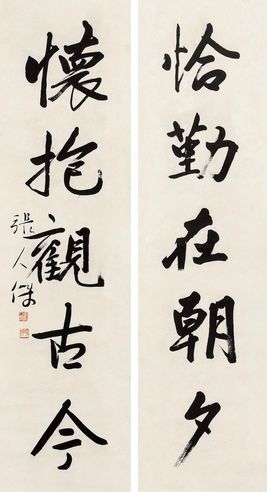 恪勤在朝夕
懷抱觀古今
張人傑